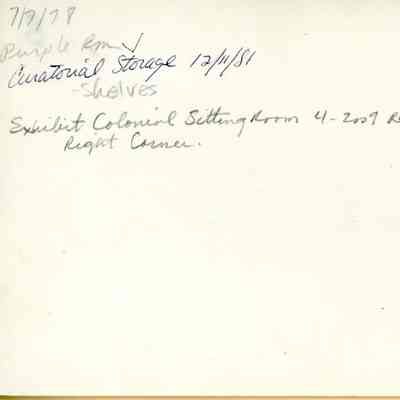 7/7/78
Purple Rm ✓
Curatorial Storage 12/11/81
-Shelves
Exhibit Colonial Sitting Room 4-2009 Re
Right Corner.